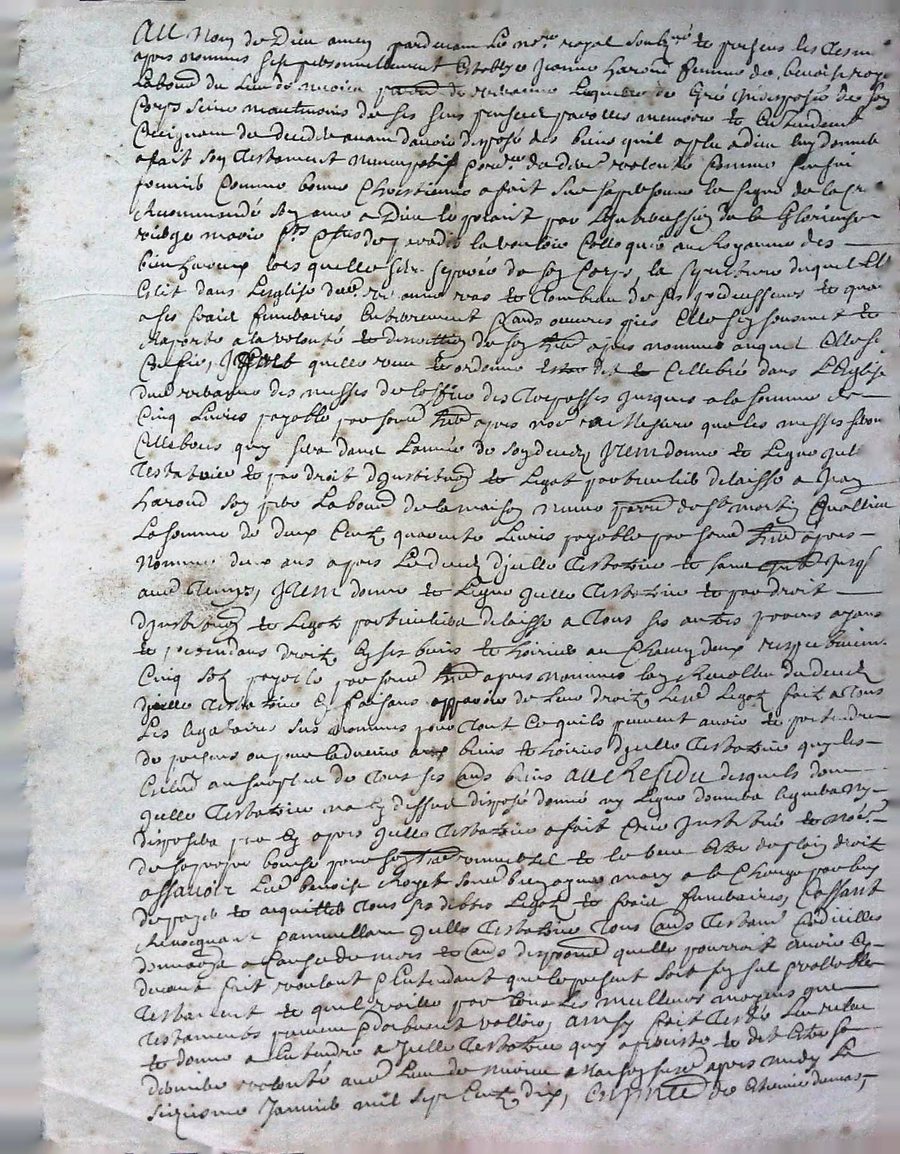 Au Nom de Dieu amen pardevant Le no.re royal soubz.né et presens les tesm
apres nommes sest personnellement establye Jeanne harond femme de benoist roye
Laboureur du Lieu de parroisse de laquelle de Gré indisposée de son
Corps seine neantmoins de ses sens pensees parolles memoire et Entendement
Craignant de deceder avant davoir disposé des biens quil a plu a dieu luy donner
a fait son testament noncupatif et ord.ce de der.e volonté Comme sensui
premier Comme bonne Chrestienne a fait sur sa personne le signe de la Cr
Recommandé son ame a Dieu le priant par Lintercession de la Glorieuse
vierge marie S.ts S.tes de paradis la vouloir Colloquer au Royaume des
bien heureux lors quelle sera separée de son Corps, la sepulture duquel Ell
Eslit dans Leglise dud. et tombeau de ses predecesseurs et quan
a ses fraid funeraires Enterrement et aud. œuvres pies Elle sen soumet et
Raporte a la volonté et discretion de son her. apres nommé auquel Elle se
Confie, Item quelle veut et ordonne estre dit et Cellebré dans LEglise
dud. des messes de loffice des trepasses jusques a la somme de
Cinq Livres payable par sond. her. apres nommé a mesure que les messes seron
Cellebrees quy sera dans Lannée de son deces, Item donne et Legue lad.
testatrice et par droit dinstitution et Legat particulier delaisse a Jean
harond son pere Laboureur de la maison neuve parr. de St martin
La somme de deux Cent quarante Livres payable par sond. her. apres
nommé deux ans apres Le deces dicelle testatrice et sans jusq
aud. temps, Item donne et Legue icelle testatrice et par droit
dinstitution et Legat particulier delaisse a tous ses autres parens ayans
et pretendans droit en ses biens et hoiries a Chacun deux respectivem.
Cinq sols payable par sond. her. apres nommé Lors du deces
dicelle testatrice En faisans apparoir de leur droit, Lesd. Legats fait a tous
Les legataires sus nommes pour tout Ce quils peuvent avoir et pretendre
de present ou pour ladvenir aux biens et hoiries dicelle testatrice quy les
Exclud au surplus de tous ses aud. biens, au Residu desquels dont
icelle testatrice na Cy dessus disposé donné ny Legué donnera leguera ny
disposera par Cy apres icelle testatrice a fait Créé Institué et nommé
de sa propre bouche pour son her. universel et la veut Estre de plein droit
assavoir Led. Benoist Royet son bien aymé mary a la Charge par luy
de payer et acquitter tous ses debtes Legats et fraid funeraires, Cassant
Revocquant et annullant icelle testatrice tous aud. testamt Codicilles
donnations a Cause de mort et aud. disposions quelle pourroit avoir Cy
devant fait voulant et Entendant que le present soit son seul et vallable
testament et quil vaille par tous Les meilleurs moyens que
testaments peuvent et doibvent valloir, ainsy fait testé Lu relu
et donné a Entendre a icelle testatrice quy a et dit Estre sa
derniere volonté aud. Lieu de maison apres midy Le
sixiesme Janvier mil sept Cent dix, En p.nce de